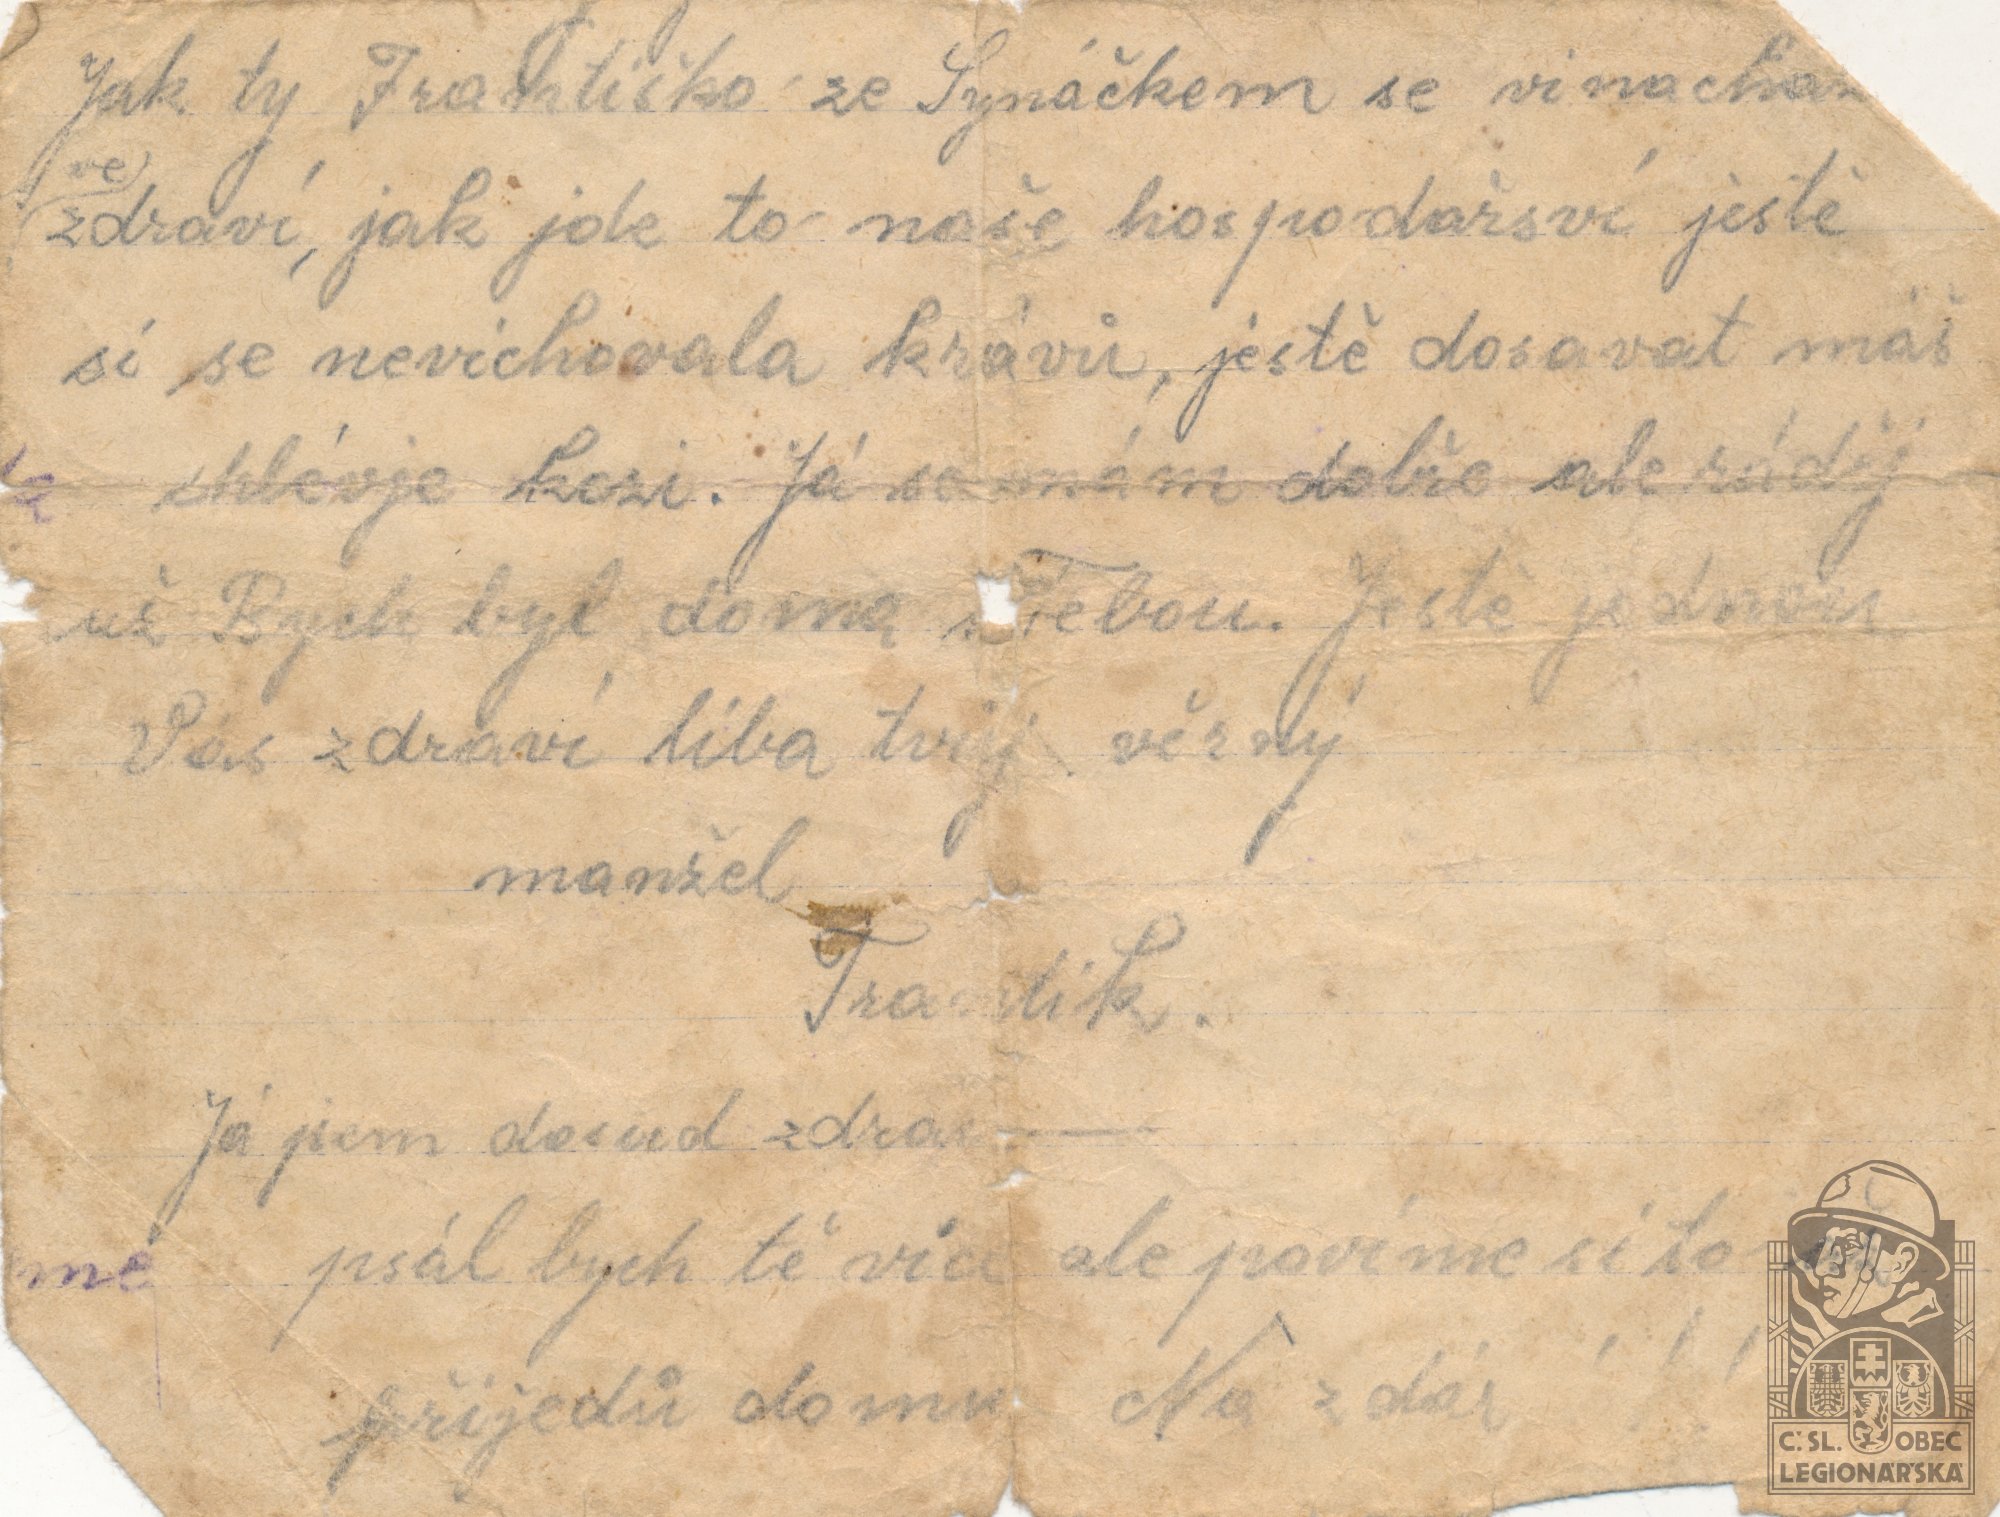 Jak ty Františko ze Synáčkem se vinacház
ve
zdraví, jak jde to naše hospodářsví jěstě
si se nevichovala krávů, jěstě dosavat máš
chlévje kozi. Já se mám dobře ale ráděj
už Bych byl doma sTebou. Jestě jednou
Vás zdraví líba tvůj věrný
manžel
Frantik.
Já jsem dosud zdrav
psál bych tě více ale povíme si to
přijedů domu Na zdár !!!
mě
Č. SL. OBEC
LEGIONÁŘSKÁ